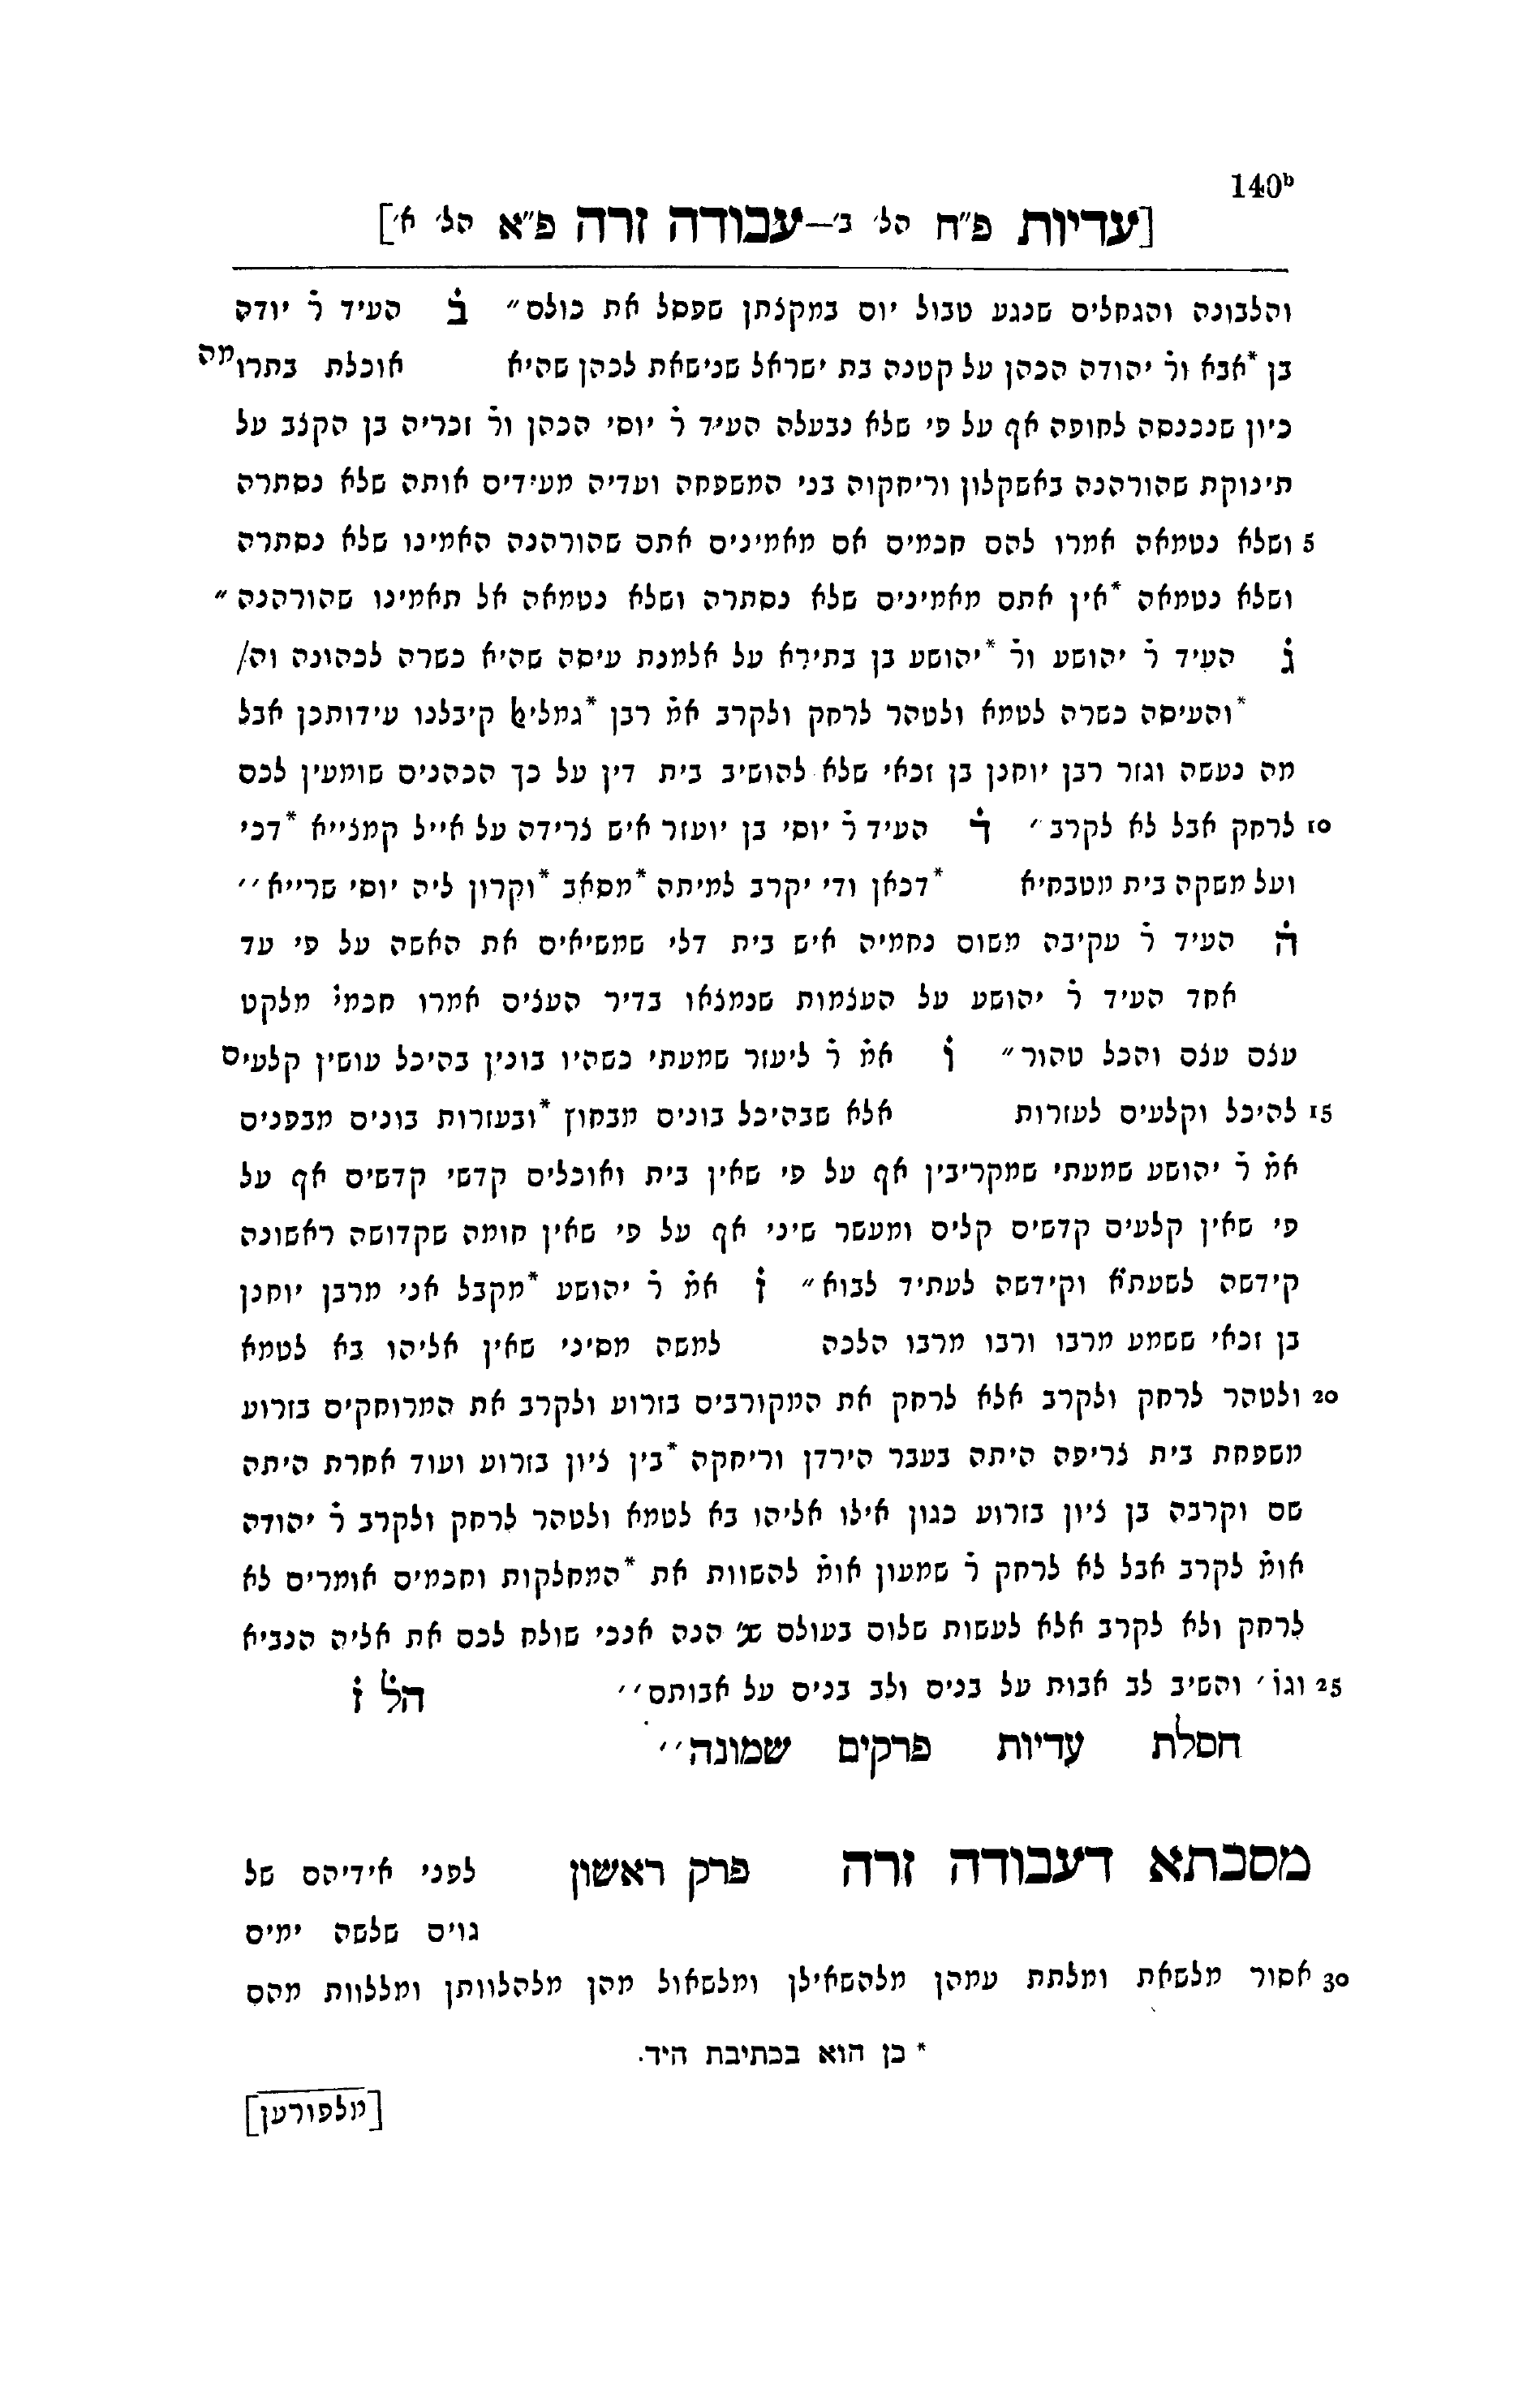 140b
[עדיות פ״ח הל׳ ב׳—עבודה זרה פ״א הל׳ א׳]
והלבונה והגחלים שנגע טבול יום במקצתן שפסל את כולם״ ב̇ העיד ר̇ יודה
בן *אבא ור̇ יהודה הכהן על קטנה בת ישראל שנישאת לכהן שהיא אוכלת בתרומה
כיון שנכנסה לחופה אף על פי שלא נבעלה העיד ר̇ יוסי הכהן ור̇ זכריה בן הקצב על
תינוקת שהורהנה באשקלון וריחקוה בני המשפחה ועדיה מעידים אותה שלא נסתרה
5 ושלא נטמאה אמרו להם חכמים אם מאמינים אתם שהורהנה האמינו שלא נסתרה
ושלא נטמאה *אין אתם מאמינים שלא נסתרה ושלא נטמאה אל תאמינו שהורהנה״
ג̇ העיד ר̇ יהושע ור̇ *יהושע בן בתירא על אלמנת עיסה שהיא כשרה לכהונה וה/
*והעיסה כשרה לטמא ולטהר לרחק ולקרב אמ̇ רבן *גמליﭏ קיבלנו עידותכן אבל
מה נעשה וגזר רבן יוחנן בן זכאי שלא להושיב בית דין על כך הכהנים שומעין לכם
10 לרחק אבל לא לקרב׳ ד̇ העיד ר̇ יוסי בן יועזר איש צרידה על אייל קמצייא *דכי
ועל משקה בית מטבחיא *דכאן ודי יקרב למיתה *מסאב *וקרון ליה יוסי שרייא׳׳
ה̇ העיד ר̇ עקיבה משום נחמיה איש בית דלי שמשיאים את האשה על פי עד
אחד העיד ר̇ יהושע על העצמות שנמצאו בדיר העצים אמרו חכמי̇ מלקט
עצם עצם והכל טהור״ ו̇ אמ̇ ר̇ ליעזר שמעתי כשהיו בונין בהיכל עושין קלעים
15 להיכל וקלעים לעזרות אלא שבהיכל בונים מבחוץ *ובעזרות בונים מבפנים
אמ̇ ר̇ יהושע שמעתי שמקריבין אף על פי שאין בית ואוכלים קדשי קדשים אף על
פי שאין קלעים קדשים קלים ומעשר שיני אף על פי שאין חומה שקדושה ראשונה
קידשה לשעת̇א וקידשה לעתיד לבוא״ ז̇ אמ̇ ר̇ יהושע *מקבל אני מרבן יוחנן
בן זכאי ששמע מרבו ורבו מרבו הלכה למשה מסיני שאין אליהו בא לטמא
20 ולטהר לרחק ולקרב אלא לרחק את המקורבים בזרוע ולקרב את המרוחקים בזרוע
משפחת בית צריפה היתה בעבר הירדן וריחקה *בין ציון בזרוע ועוד אחרת היתה
שם וקרבה בן ציון בזרוע כגון אילו אליהו בא לטמא ולטהר לרחק ולקרב ר̇ יהודה
אומ̇ לקרב אבל לא לרחק ר̇ שמעון אומ̇ להשוות את *המחלקות וחכמים אומרים לא
לרחק ולא לקרב אלא לעשות שלום בעולם שנ׳ הנה אנכי שולח לכם את אליה הנביא
25 וגו̇׳ והשיב לב אבות על בנים ולב בנים על אבותם׳׳ הל̇ ז̇
חסלת עדיות פרקים שמונה׳׳
מסכתא דעבודה זרה פרק ראשון לפני אידיהם של
גוים שלשה ימים
30 אסור מלשאת ומלתת עמהן מלהשאילן ומלשאול מהן מלהלוותן ומללוות מהם
* כן הוא בכתיבת היד.
[מלפורען]